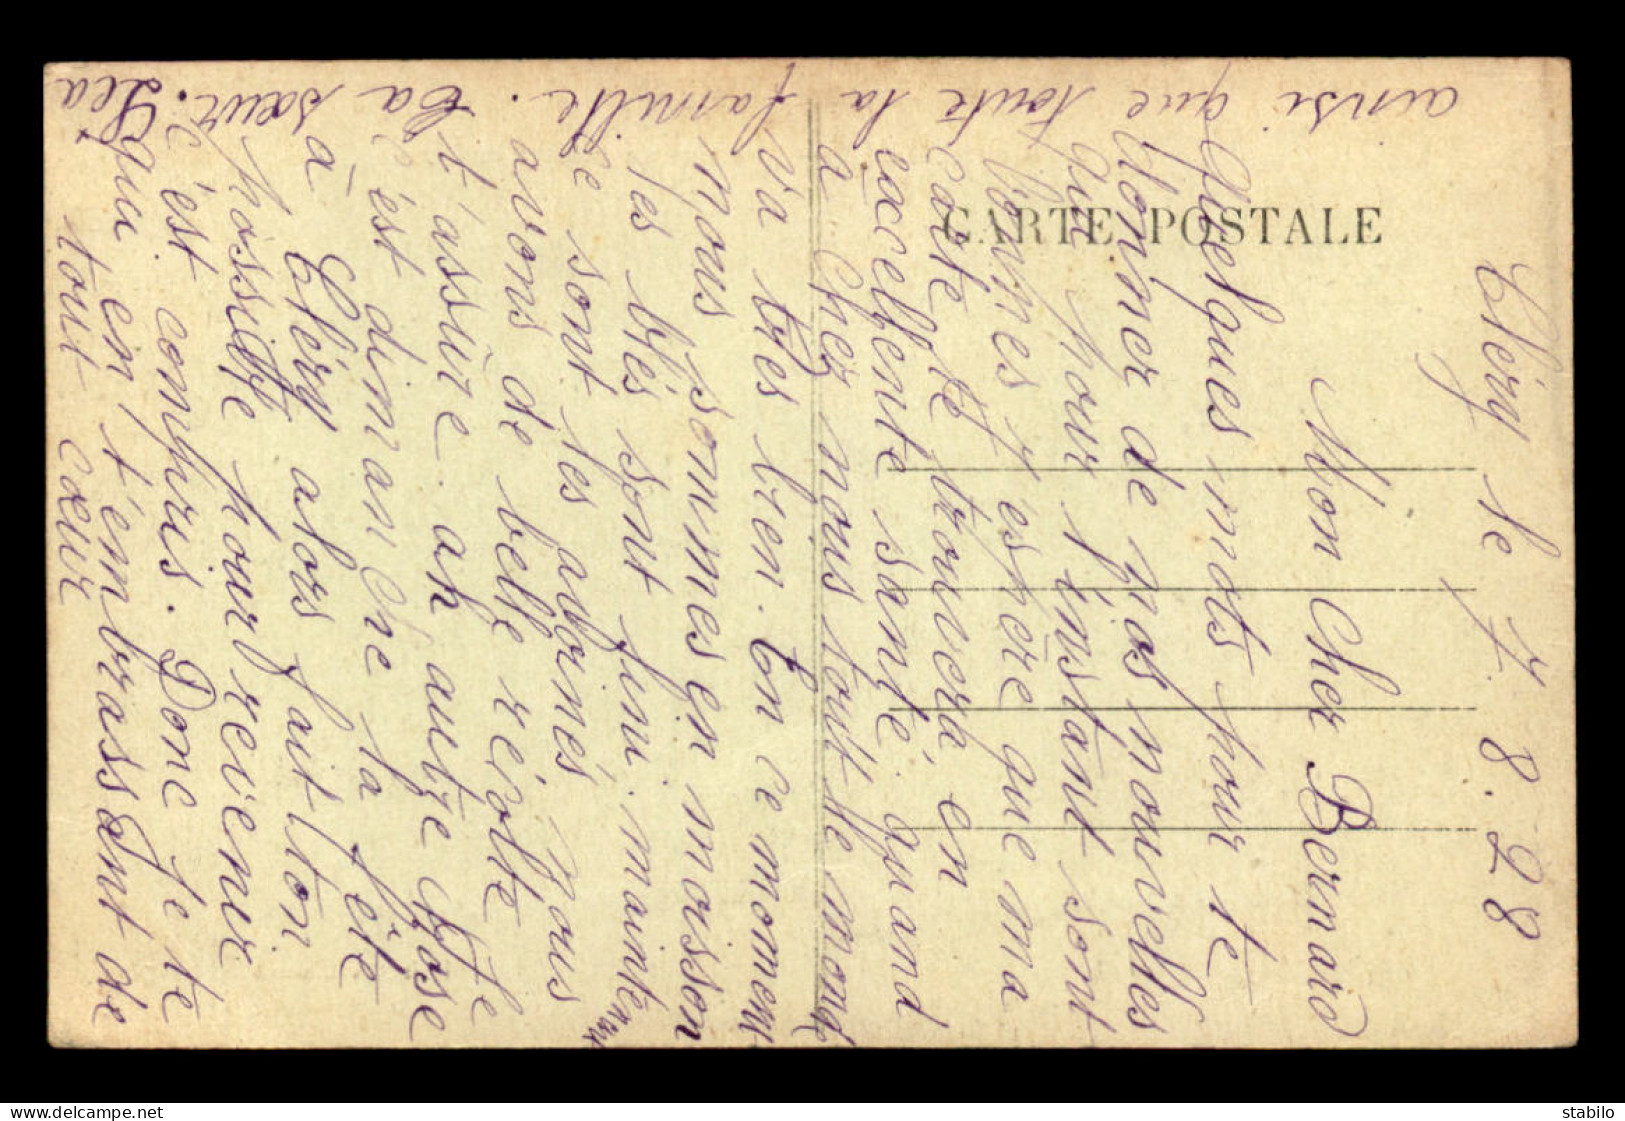 CARTE POSTALE
Cléry le 7. 8. 28
Mon Cher Bernard
Quelques mots pour te
donner de nos nouvelles
qui pour l'instant sont
bonnes j'éspère que ma
carte te trouvera en
excellente santé. quand
a Chez nous tout le monde
va très bien. En ce moment
nous sommes en moisson
les blés sont fini. maintenant
ce sont les avoinés nous
avons de belle récolte je
t'assure. ah autre chose
c'est dimanche la fête
à Cléry alors fait ton
possible pour revenir
c'est compris. Donc je te
qui en t'émbrassant de
tout cœur
ainsi que toute la famille. Ta sœur. Léa
stabilo